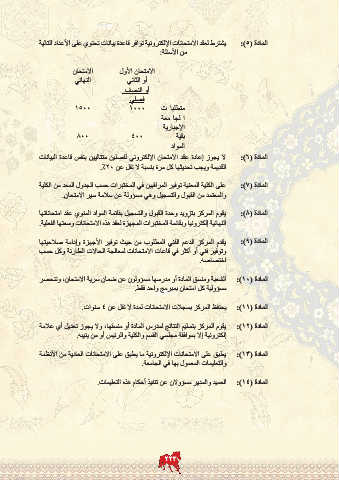 المادة (٥): يشترط لعقد الامتحانات الإلكترونية توافر قاعدة بيانات تحتوي على الأعداد التالية
من الأسئلة:
الامتحان الأول الامتحان
أو الثاني النهائي
أو النصف
فصلي
متطلبات ١٠٠٠ ١٥٠٠
الجامعة
الإجبارية
بقية ٤٠٠ ٨٠٠
المواد
المادة (٦): لا يجوز إعادة عقد الامتحان الإلكتروني لفصلين متتاليين بنفس قاعدة البيانات
القديمة ويجب تحديثها كل مرة بنسبة لا تقل عن ٢٠٪.
المادة (٧): على الكلية المعنية توفير المراقبين في المختبرات حسب الجدول المعد من الكلية
والمعتمد من القبول والتسجيل وهي مسؤولة عن سلامة سير الامتحان.
المادة (٨): يقوم المركز بتزويد وحدة القبول والتسجيل بقائمة المواد المنوي عقد امتحاناتها
النهائية إلكترونيا وبقائمة المختبرات المجهزة لعقد هذه الامتحانات وسعتها الفعلية.
المادة (٩): يقدم المركز الدعم الفني المطلوب من حيث توفير الأجهزة وإدامة صلاحيتها
وتوفير فني أو أكثر في قاعات الامتحانات لمعالجة الحالات الطارئة وكل حسب
اختصاصه.
المادة (١٠): الشعبة ومنسق المادة أو مدرسها مسؤولون عن ضمان سرية الامتحان، وتنحصر
مسؤولية كل امتحان بمبرمج واحد فقط.
المادة (١١): يحتفظ المركز بسجلات الامتحانات لمدة لا تقل عن ٤ سنوات.
المادة (١٢): يقوم المركز بتسليم النتائج لمدرس المادة أو منسقها، ولا يجوز تعديل أي علامة
إلكترونية إلا بموافقة مجلسي القسم والكلية والرئيس أو من ينيبه.
المادة (١٣): يطبق على الامتحانات الإلكترونية ما يطبق على الامتحانات العادية من الأنظمة
والتعليمات المعمول بها في الجامعة.
المادة (١٤): العميد والمدير مسؤولان عن تنفيذ أحكام هذه التعليمات.